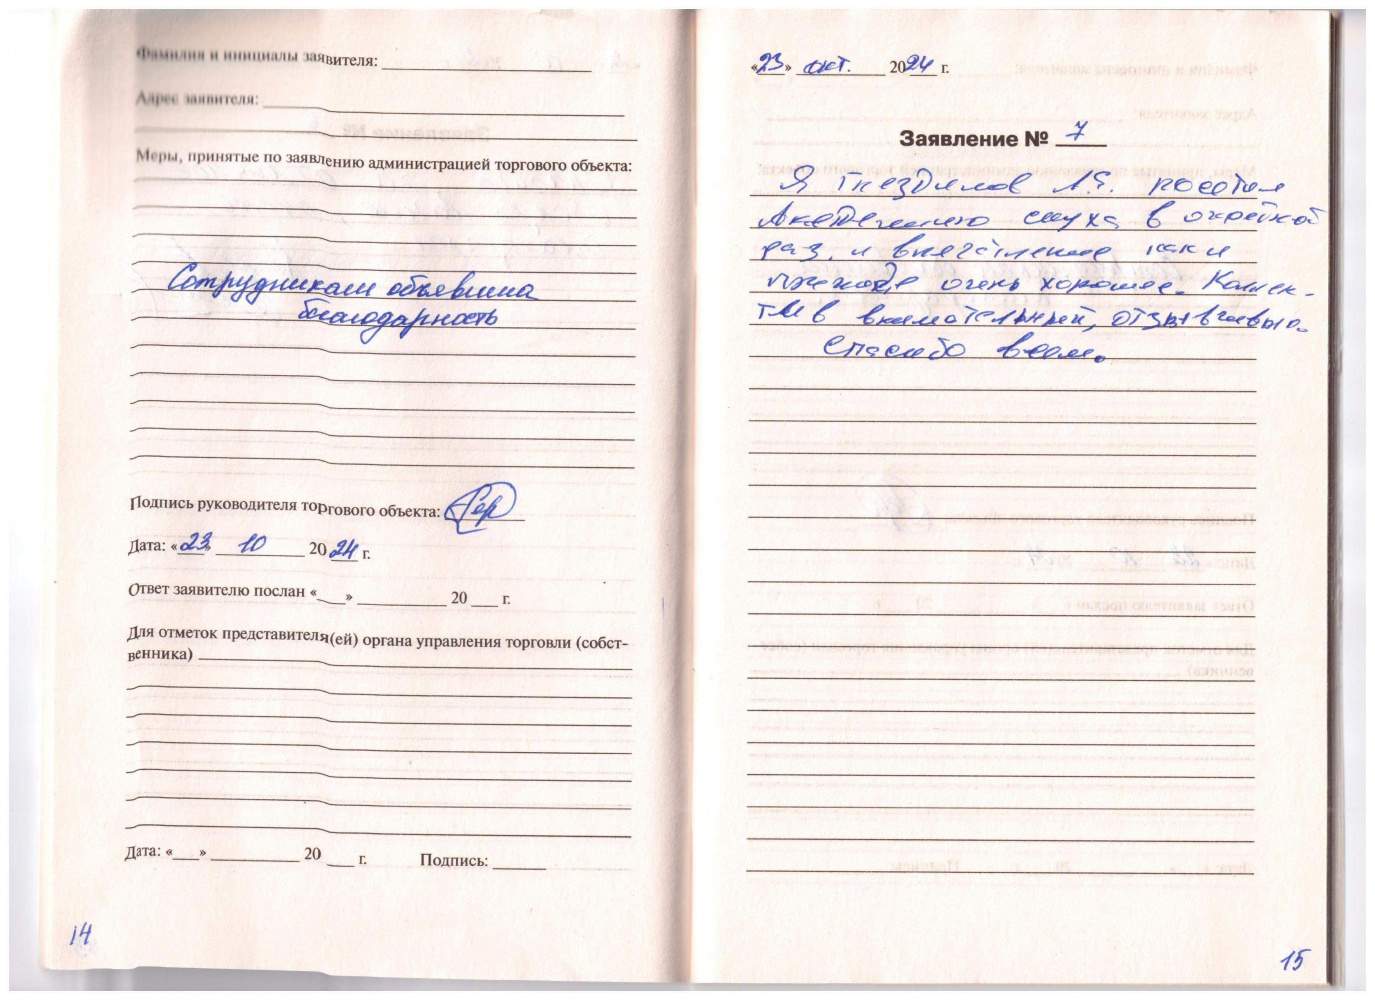 Фамилия и инициалы заявителя:
Адрес заявителя:
Меры, принятые по заявлению администрацией торгового объекта:
Сотрудникам объявлена
благодарность
Подпись руководителя торгового объекта:
Дата: «23» 10 2024 г.
Ответ заявителю послан «___» ___ 20 ___ г.
Для отметок представителя(ей) органа управления торговли (собст-
венника)
Дата: «___» ___ 20 ___ г. Подпись:
14
«23» окт. 2024 г.
Заявление № 7
Я Гнездилов посетил
Академию слуха в очередной
раз. и впечатление как и
прежде очень хорошее. Коллек-
тив внимательный, отзывчивый.
Спасибо всем.
15